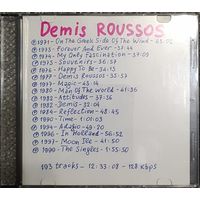 Demis ROUSSOS
℗1971 - On The Greek Side Of The Wind - 45:02
℗1973 - Forever And Ever - 37:44
℗1974 - My Only Fascination - 37:09
℗1975 - Souvenirs - 36:57
℗1976 - Happy To Be - 34:13
℗1977 - Demis Roussos - 33:57
℗1977 - Magic - 43:14
℗1980 - Man Of The World - 41:36
℗1982 - Attitudes - 37:36
℗1982 - Demis - 32:04
℗1984 - Reflection - 48:45
℗1990 - Time - 1:01:03
℗1994 - Adagio - 49:20
℗1996 - In Holland - 56:52
℗1997 - Moon Ile - 41:50
℗1999 - The Singles - 1:55:50
193 tracks - 12:33:08 - 128 kbps